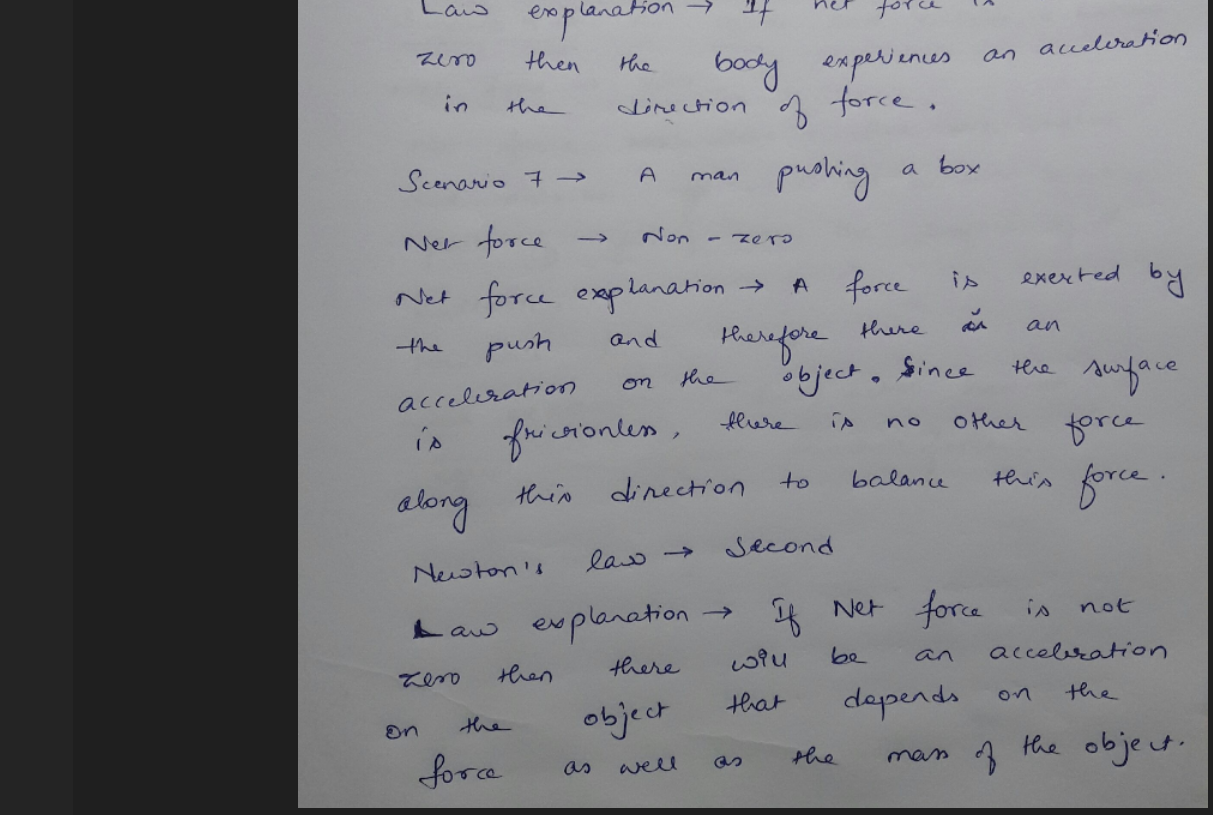 Law explanation → If net force is
zero then the body experiences an acceleration
in the direction of force.
Scenario 7 → A man pushing a box
Net force → Non-zero
Net force explanation → A force is exerted by
the push and therefore there is an
acceleration on the object. Since the surface
is frictionless, there is no other force
along this direction to balance this force.
Newton's law → Second
Law explanation → If Net force is not
zero then there will be an acceleration
on the object that depends on the
force as well as the mass of the object.